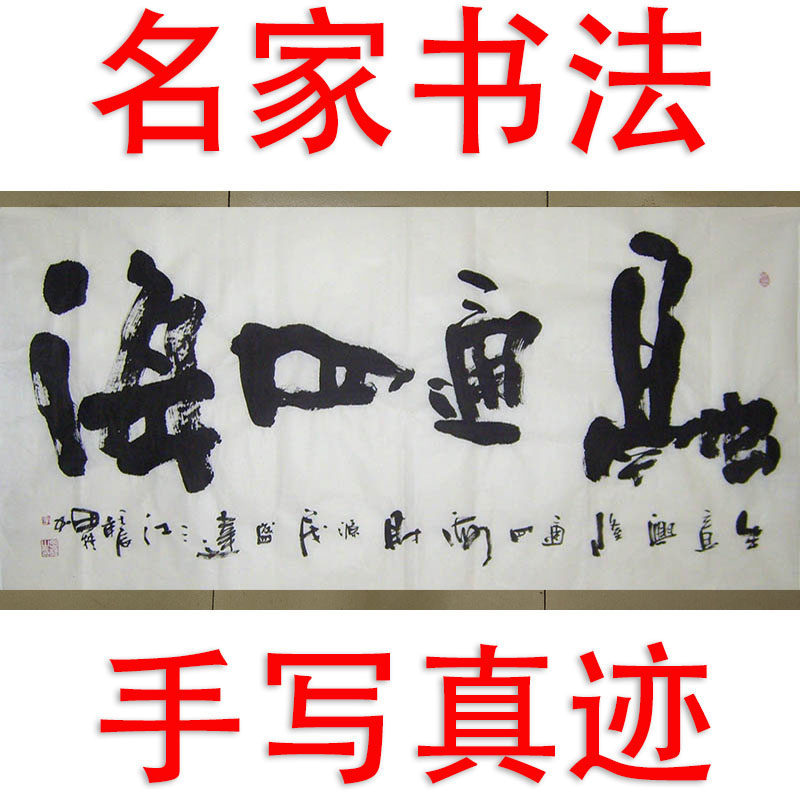 名家书法
馳通四海
生意興隆通四海財源茂盛達三江
手写真迹